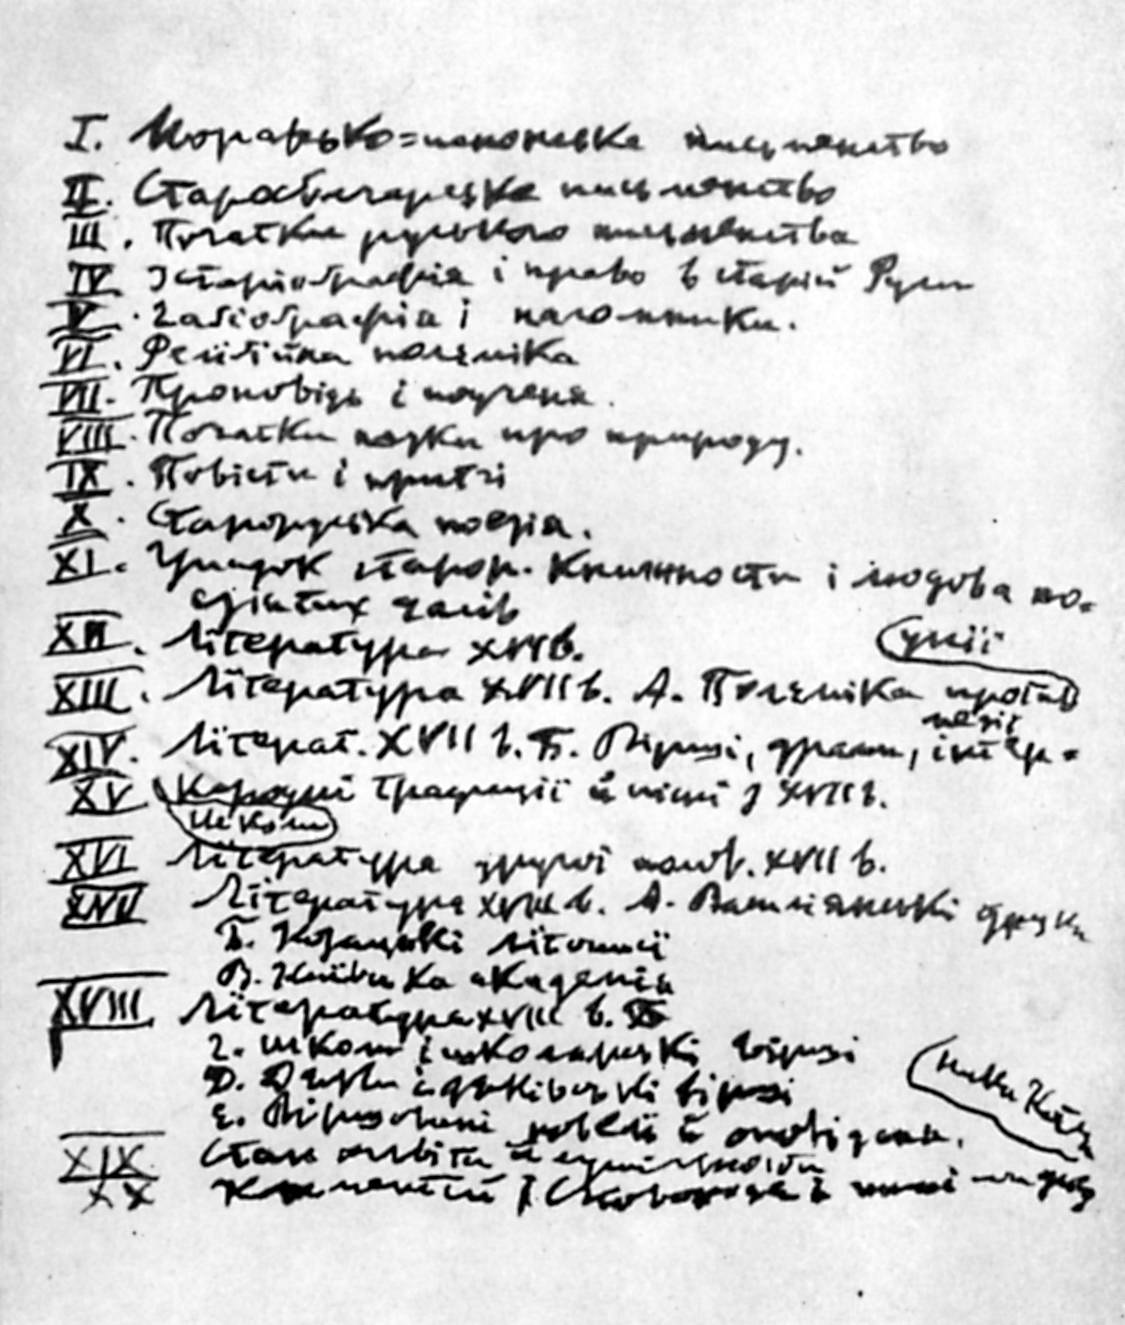 I. Моравсько=панонське письменство
II. Староболгарське письменство
III. Початки руського письменства
IV Історіографія і право в старій Руси
V. Гагіографія і паломники.
VI. Релігійна полєміка
VII. Проповідь і поученя.
VIII. Початки науки про природу.
IX. Повісти і притчі
X. Староруська поезія.
XI. Упадок старор. книжности і людова по=
езія тих часів
XII. Література XVI в.
унії
XIII. Література XVII в. А. Полєміка против
XIV. Літерат. XVII в. Б. Вірші, драми, інтер=
медії
XV Народні традиції й пісні з XVII в.
школи
XVI Література другої полов. XVII в.
XVII Література XVIII в. А. Василіянські друки
Б. Козацькі літописи
В. Київська академія
XVIII Література XVIII в.
Г. школи і школярські вірші
Д. Дяки і дяківські вірші
Е. Віршовані повісти й оповіданя.
XIX. Стан освіти й
XX Сковорода і